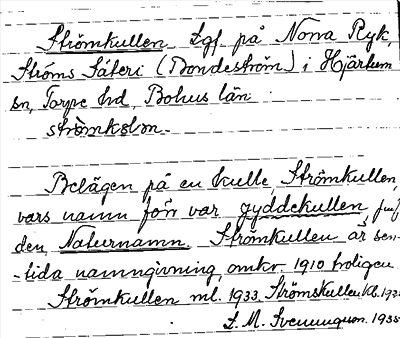 Strömkullen Lgf. på Norra Ryk,
Ströms Säteri (Bondeström) i Hjärtum
sn, Torpe hd, Bohus län.
strömkslm.
Belägen på en kulle, Strömkullen,
vars namn förr var gyddekullen, jmf
den Naturnamn. Strömkullen är sen-
-tida namngivning, omkr. 1910 troligen
Strömkullen ml. 1933 Strömskullen Kb. 193
L. M. Svenungson. 1935